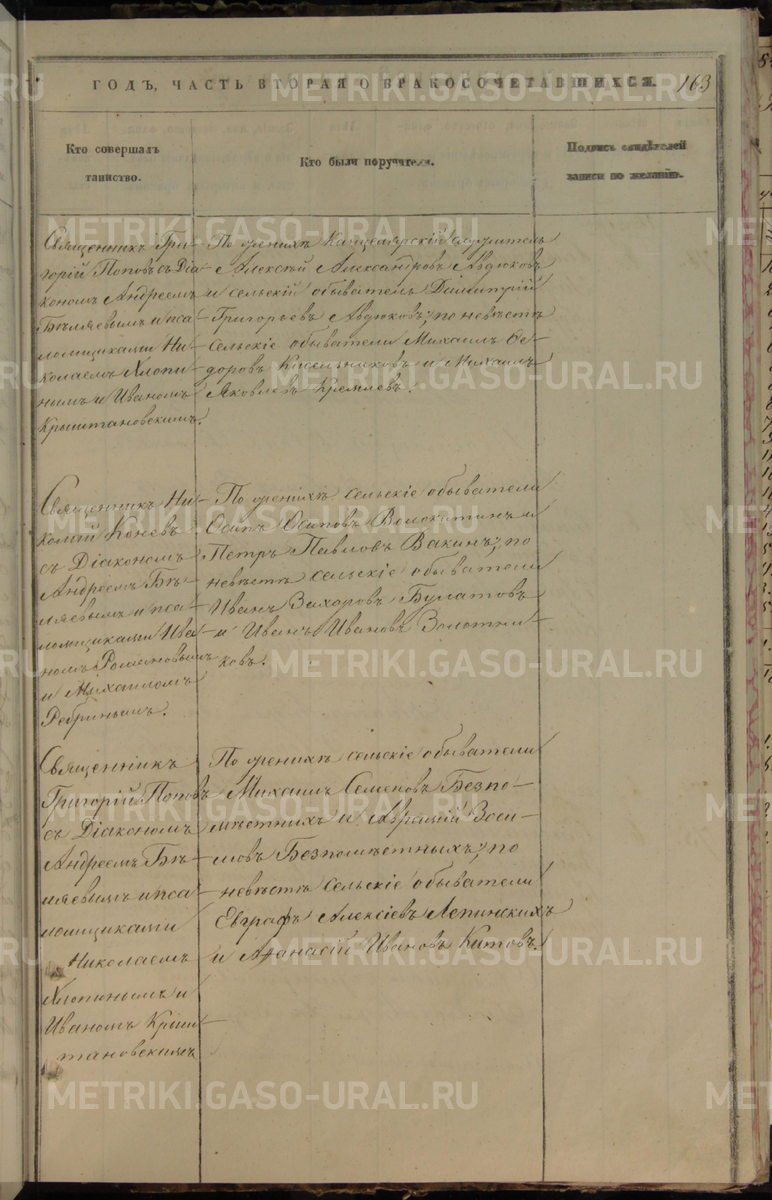 ГОДЪ, ЧАСТЬ ВТОРАЯ О БРАКОСОЧЕТАВШИХСЯ. 163
Кто совершалъ
таинство.
Кто были поручители.
Подпись свидѣтелей
записи по желанію.
Священникъ Гри-
горій Поповъ съ Діа-
кономъ Андреемъ
Бѣляевымъ и пса-
ломщиками Ни-
колаемъ Хлопи-
нымъ и Иваномъ
Крыштановскимъ.
По женихѣ Канцелярскій служитель
Алексѣй Александровъ Авдюковъ
и сельскій обыватель Димитрій
Григорьевъ Авдюковъ; по невѣстѣ
сельскіе обыватели Михаилъ Ѳе-
доровъ Кисельниковъ и Михаилъ
Яковлевъ Кремлевъ.
Священникъ Ни-
колай Коневъ
съ Діакономъ
Андреемъ Бѣ-
ляевымъ и пса-
ломщиками Ива-
номъ Романовымъ
и Михаиломъ
Ребринымъ.
По женихѣ сельскіе обыватели
Осипъ Осиповъ Волокитинъ и
Петръ Павловъ Вакинъ; по
невѣстѣ сельскіе обыватели
Иванъ Захаровъ Булатовъ
и Иванъ Ивановъ Золотни-
ковъ.
Священникъ
Григорій Поповъ
съ Діакономъ
Андреемъ Бѣ-
ляевымъ и пса-
ломщиками
Николаемъ
Хлопинымъ и
Иваномъ Крыш-
тановскимъ
По женихѣ сельскіе обыватели
Михаилъ Семеновъ Безпо-
мѣтныхъ и Аврамій Зоси-
мовъ Безпомѣтныхъ; по
невѣстѣ сельскіе обыватели
Евграфъ Алексіевъ Лепинскихъ
и Аѳанасій Ивановъ Китовъ.
METRIKI.GASO-URAL.RU